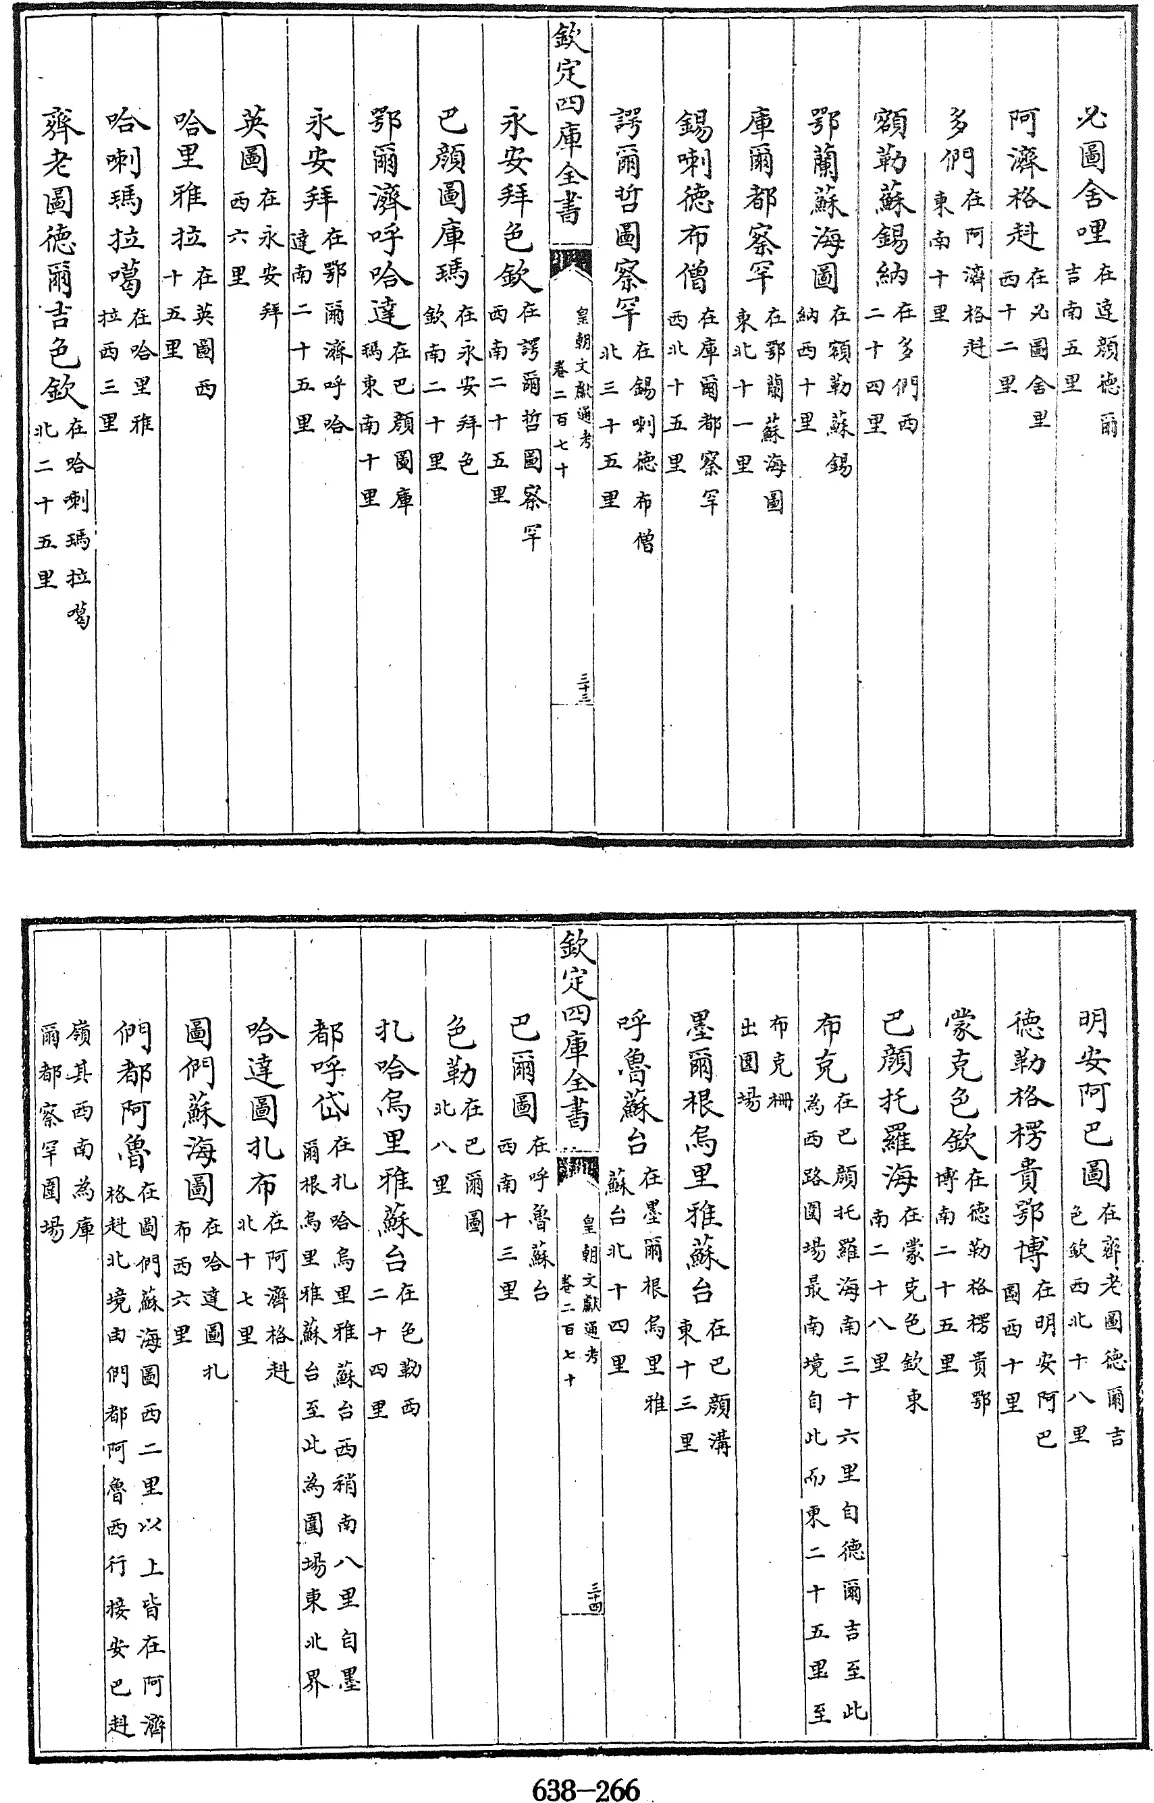 必圖舍哩在達顔德爾吉南五里
阿濟格赳在必圖舍里西十二里
多們在阿濟格赳東南十里
額勒蘇錫納在多們西二十四里
鄂蘭蘇海圖在額勒蘇錫納西十里
庫爾都察罕在鄂蘭蘇海圖東北十一里
錫喇德布僧在庫爾都察罕西北十五里
諤爾哲圖察罕在錫喇德布僧北三十五里
欽定四庫全書
皇朝文獻通考
卷二百七十
三十三
永安拜色欽在諤爾哲圖察罕西南二十五里
巴顔圖庫瑪在永安拜色欽南二十里
鄂爾濟呼哈達在巴顔圖庫瑪東南十里
永安拜在鄂爾濟呼哈達南二十五里
英圖在永安拜西六里
哈里雅拉在英圖西十五里
哈喇瑪拉噶在哈里雅拉西三里
齊老圖德爾吉色欽在哈喇瑪拉噶北二十五里
明安阿巴圖在齊老圖德爾吉色欽西北十八里
德勒格楞貴鄂博在明安阿巴圖西十里
蒙克色欽在德勒格楞貴鄂博南二十五里
巴顔托羅海在蒙克色欽東南二十八里
布克在巴顔托羅海南三十六里自德爾吉至此為西路圍場最南境自此而東二十五里至
布克柵出圍場
墨爾根烏里雅蘇台在巴顔溝東十三里
呼魯蘇台在墨爾根烏里雅蘇台北十四里
欽定四庫全書
皇朝文獻通考
卷二百七十
三十四
巴爾圖在呼魯蘇台西南十三里
色勒在巴爾圖北八里
扎哈烏里雅蘇台在色勒西二十四里
都呼岱在扎哈烏里雅蘇台西稍南八里自墨爾根烏里雅蘇台至此為圍場東北界
哈達圖扎布在阿濟格赳北十七里
圖們蘇海圖在哈達圖扎布西六里
們都阿魯在圖們蘇海圖西二里以上皆在阿濟格赳北境由們都阿魯西行接安巴赳
嶺其西南為庫爾都察罕圍場
638-266